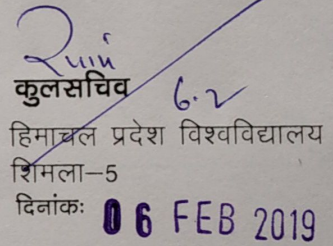 कुलसचिव
6.2
हिमाचल प्रदेश विश्वविद्यालय
शिमला-5
दिनांकः 06 FEB 2019